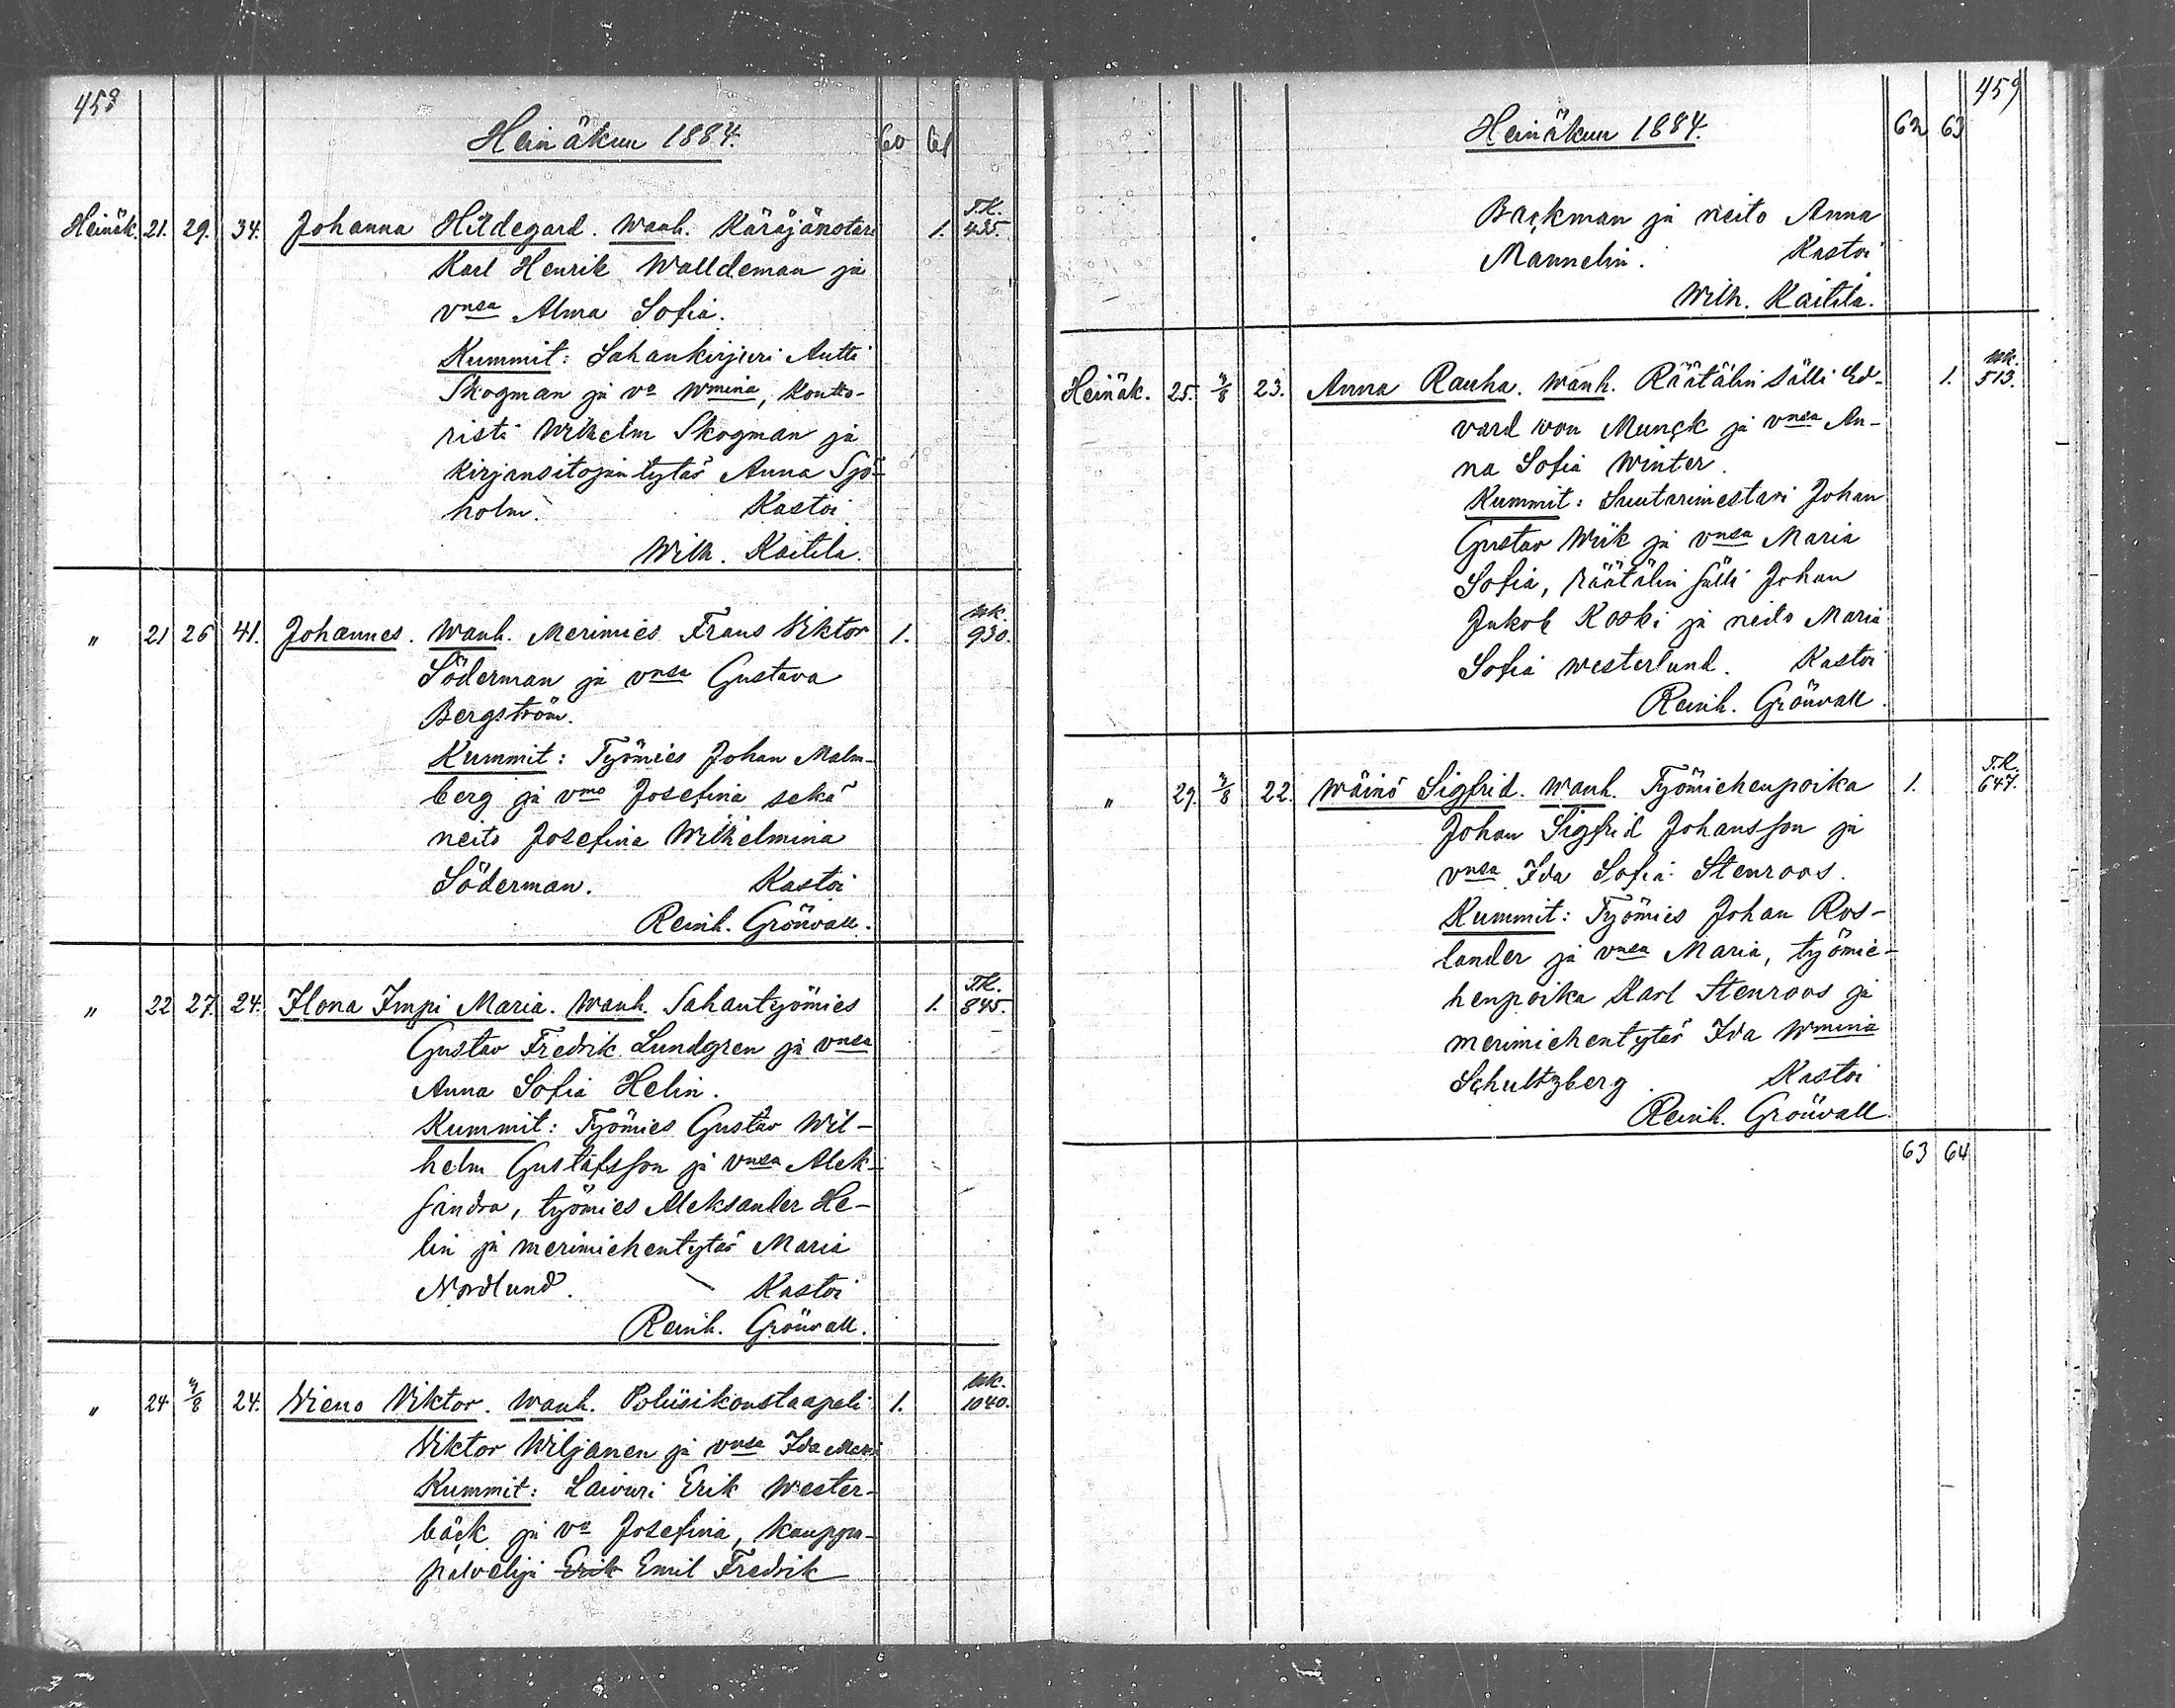 458
Heinäkuu 1884.
60 61
Heinäk. 21. 29. 34. Johanna Hildegard. Wanh. Käräjänotari 1. T.K. 435.
Karl Henrik Walldeman ja
vnsa Alma Sofia.
Kummit: Sahankirjuri Antti
Skogman ja va Wmina, kontto-
risti Wilhelm Skogman ja
kirjansitojantytär Anna Sjö-
holm. Kastoi
Wilh. Kaitila.
" 21 26 41. Johannes. Wanh. Merimies Frans Viktor 1. uk. 930.
Söderman ja vnsa Gustava
Bergström.
Kummit: Työmies Johan Malm-
berg ja vmo Josefina sekä
neito Josefina Wilhelmina
Söderman. Kastoi
Reinh. Grönvall.
" 22 27. 24. Ilona Impi Maria. Wanh. Sahantyömies 1. T.K. 845.
Gustav Fredrik Lundgren ja vnsa
Anna Sofia Helin.
Kummit: Työmies Gustav Wil-
helm Gustafsson ja vnsa Alek-
sandra, työmies Aleksander He-
lin ja merimiehentytär Maria
Nordlund. Kastoi
Reinh. Grönvall.
" 24 3/8 24. Vieno Viktor. Wanh. Poliisikonstaapeli 1. uk. 1040.
Viktor Wiljanen ja vnsa Ida Maria
Kummit: Laivuri Erik Wester-
bäck ja va Josefina, kauppa-
palvelija Erik Emil Fredrik
459
Heinäkuu 1884.
62 63
Backman ja neito Anna
Mannelin. Kastoi
Wilh. Kaitila.
Heinäk. 25. 3/8 23. Anna Rauha. Wanh. Räätälin sälli Ed- 1. uk. 513.
vard von Munck ja vnsa An-
na Sofia Winter.
Kummit: Suutarimestari Johan
Gustav Wiik ja vnsa Maria
Sofia, räätälin sälli Johan
Jakob Koski ja neito Maria
Sofia Westerlund. Kastoi
Reinh. Grönvall.
" 29. 3/8 22. Wäinö Sigfrid. Wanh. Työmiehenpoika 1. T.K. 647.
Johan Sigfrid Johansson ja
vnsa Ida Sofia Stenroos.
Kummit: Työmies Johan Ros-
lander ja vnsa Maria, työmie-
henpoika Karl Stenroos ja
merimiehentytär Ida Wmina
Schultzberg. Kastoi
Reinh. Grönvall.
63 64